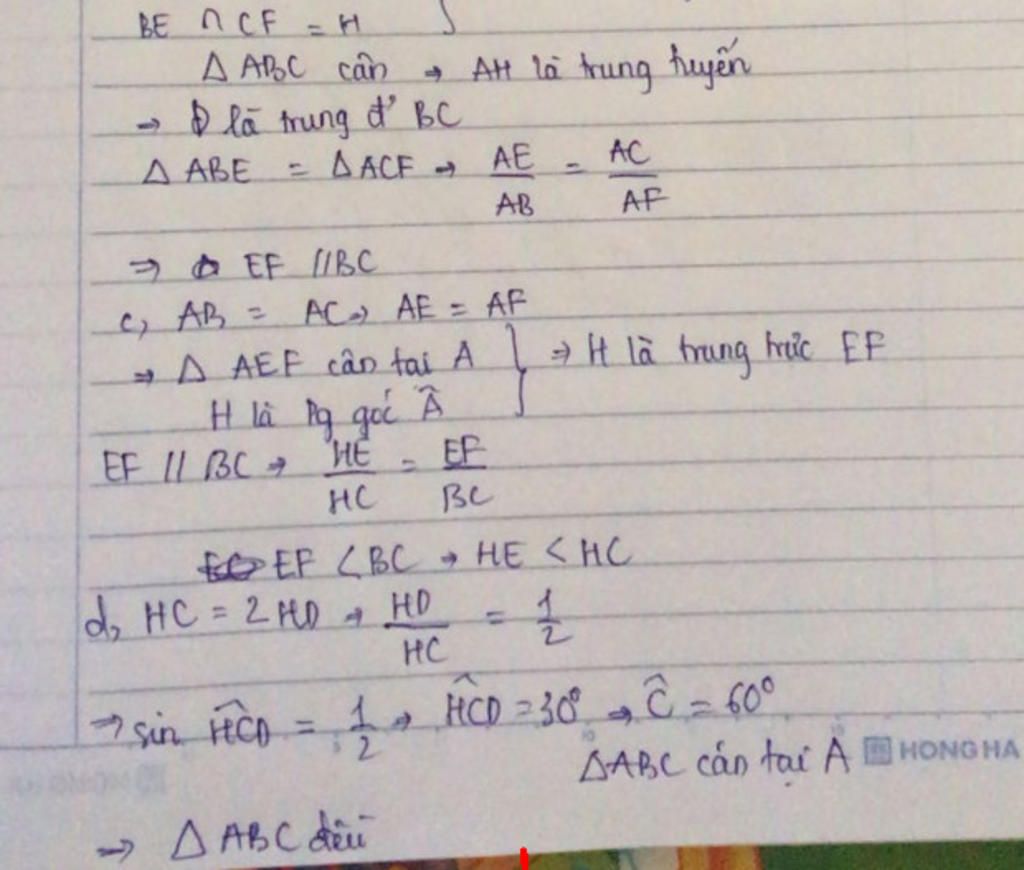 BE ∩ CF = H }
Δ ABC cân → AH là trung tuyến
→ D là trung đ' BC
Δ ABE = Δ ACF → AE/AB = AC/AF
⇒ EF // BC
c, AB = AC → AE = AF
⇒ Δ AEF cân tai A } ⇒ H là trung trực EF
H là Pg goć Â
EF // BC → HE/HC = EF/BC
EF < BC → HE < HC
d, HC = 2 HD → HD/HC = 1/2
⇒ sin \widehat{HCD} = 1/2 → \widehat{HCD} = 30° → Ĉ = 60°
ΔABC cân tại A
HONG HA
→ Δ ABC đều